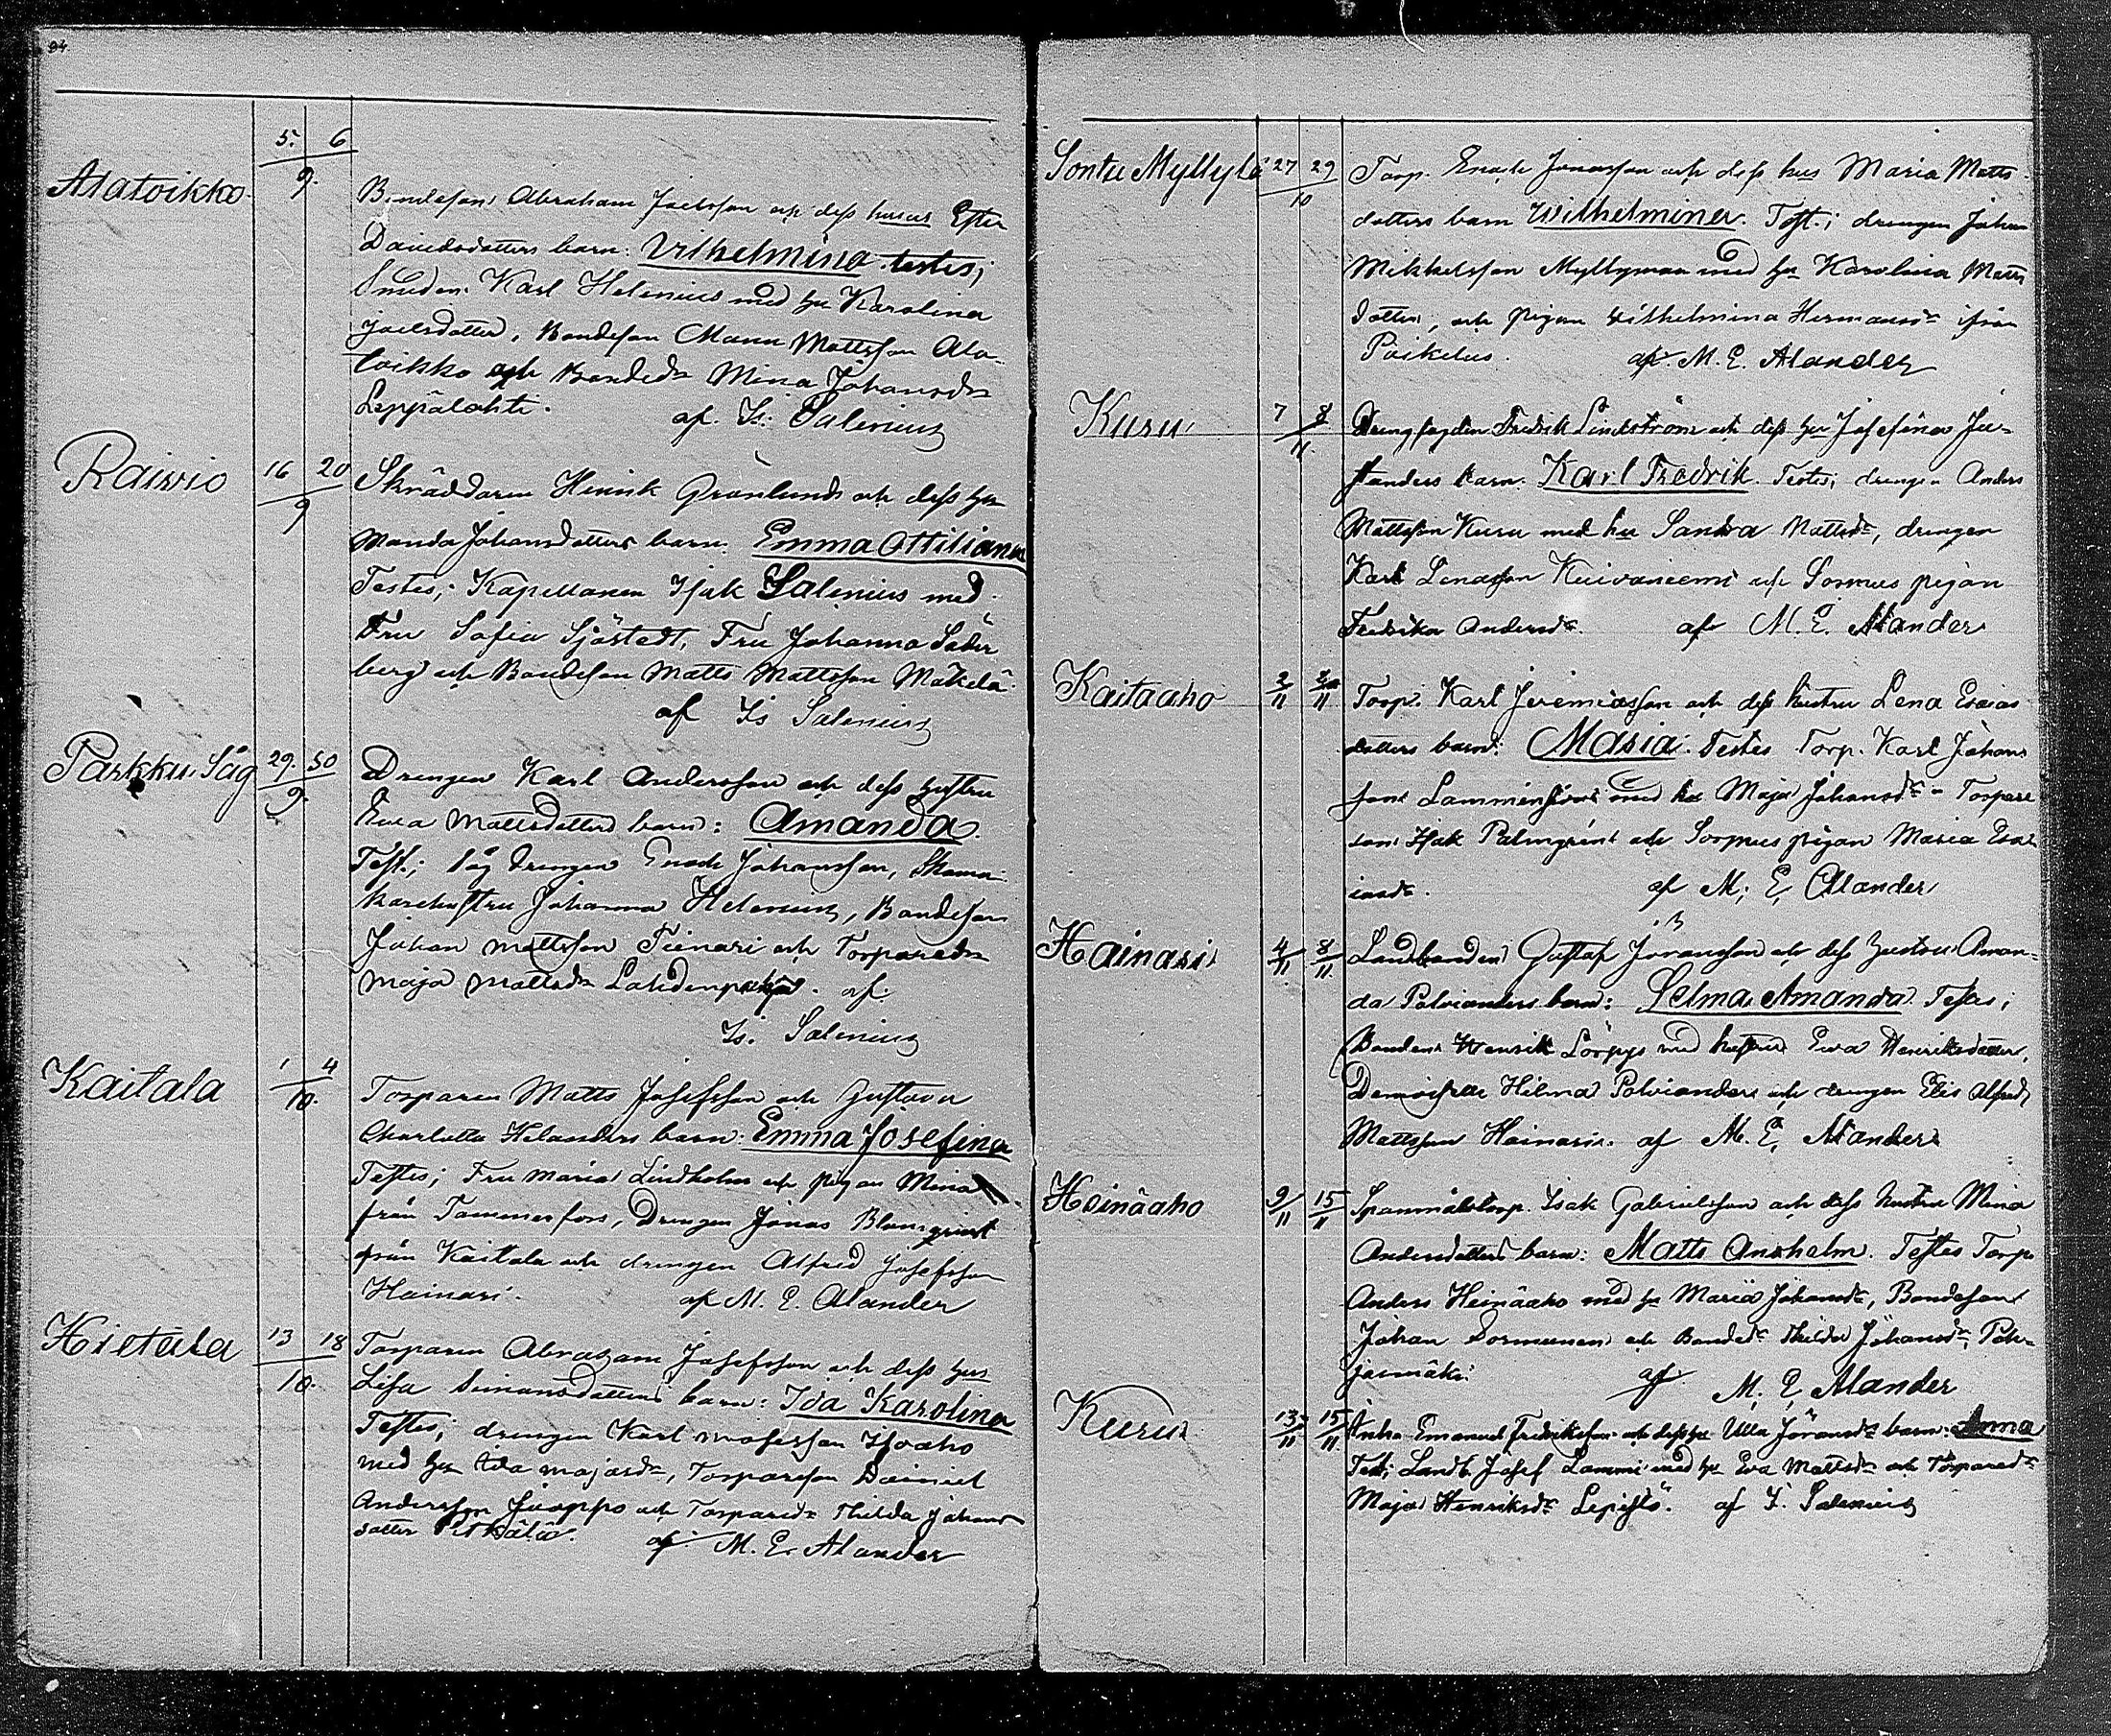 94.
Alatoikko 5. 6 / 9.
Bondeson Abraham Joelsson och dess hustrus Ester
Davidsdotters barn: Vilhelmina testes;
Smeden Karl Helenius med hu Karolina
Joelsdotter, Bondeson Manu Mattsson Ala-
toikko och Bonded:r Mina Johansd:r
Leppälahti. af. Is. Salenius
Raiwio 16 20 / 9
Skräddaren Henrik Grönlunds och dess hu
Manda Johansdotters barn. Emma Ottiliana
Testes; Kapellanen Isak Salenius med
Fru Sofia Sjöstedt, Fru Johanna Söder
berg och Bondeson Matts Mattsson Mäkelä.
af Is Salenius
Parkku Såg 29. 30 / 9.
Drengen Karl Andersson och dess hustru
Ewa Mattsdotters barn: Amanda.
Test.; Såg drengen Enock Johansson, Skoma-
karehustru Johanna Helenius, Bondeson
Johan Mattsson Tienari och Torpared:r
Maja Mattsd:r Lahdenpohja. af.
Is. Salenius
Kaitala 1 4 / 10.
Torparen Matts Josefsson och Gustava
Charlotta Helanders barn: Emma Josefina
Testes; Fru Maria Lindholm och pigan Mina
från Tammerfors, Drengen Jonas Blomqvist
från Kaitala och drengen Alfred Josefsson
Hainari. af M. E. Alander
Hietala 13 18 / 10.
Torparen Abraham Josefsson och dess hus
Lisa Simonsdotters barn: Ida Karolina
Testes; drengen Karl Mosesson Isoaho
med hu Ida Majasd:r, Torpareson Dainiel
Andersson Juoppo och Torpared:r Thilda Johans
dotter Pitkälä. af. M. E. Alander
Sontu Myllylä 27 29 / 10
Torp. Enock Jonasson och dess hus Maria Matts-
dotters barn Wilhelmina. Test.; drengen Johan
Mikkelsson Myllymaa med hu Karolina Matts
dotter, och pigan Wilhelmina Hermansd:r ifrån
Poikelus. af. M. E. Alander
Kuru 7 8 / 11.
Drengfogden Fredrik Lindström och dess hu Josefina Ju-
slanders barn. Karl Fredrik. Testes; drengen Anders
Mattsson Kuru med hu Sandra Mattsd:r, drengen
Karl Lenasson Kuivaniemi och Sormus pigan
Fredrika Andersd:r. af M. E. Alander
Kaitaaho 2/11 /11
Torp. Karl Jeremiasson och dess hustru Lena Esaias
dotters barn: Maria. Testes Torp. Karl Johans
son Lamminsivu med hu Maja Johansd:r - Torpare
son Isak Palmgren och Sormus pigan Maria Esa-
iasd:r. af M. E. Alander
Hainari 4/11 8/11
Landbonden Gustaf Jöransson och dess hustru Aman-
da Polvianders barn: Selma Amanda. Testes;
Bonden Henrik Lörpys med hustru Ewa Henriksdotter,
Demoiselle Hilma Polviander och drengen Elis Alfred
Mattsson Hainari. af M. E. Alander
Heinäaho 9/11 15/11
Spannmålstorp. Isak Gabrielsson och dess hustru Mina
Andersdotters barn: Matts Anshelm. Testes Torp
Anders Heinäaho med hu Maria Johansd:r, Bondeson
Johan Sormunen och Bonded:r Thilda Johansd:r, Poh-
jaimäki. af. M. E. Alander
Kuru 13/11 15/11
Enka Emanuel Fredriksson och dess hu Ulla Jöransd:r barn: Anna
Test; Landb. Josef Lammi med hu Eva Mattsd:r och Torpared:r
Maja Henriksd:r Lepistö. af I. Salenius